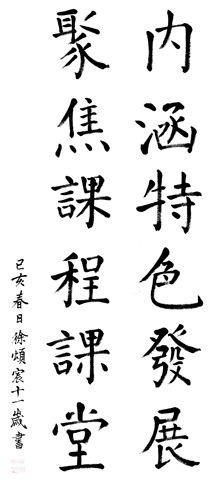 内涵特色發展
聚焦課程課堂
己亥春日徐頌宸十一歲書